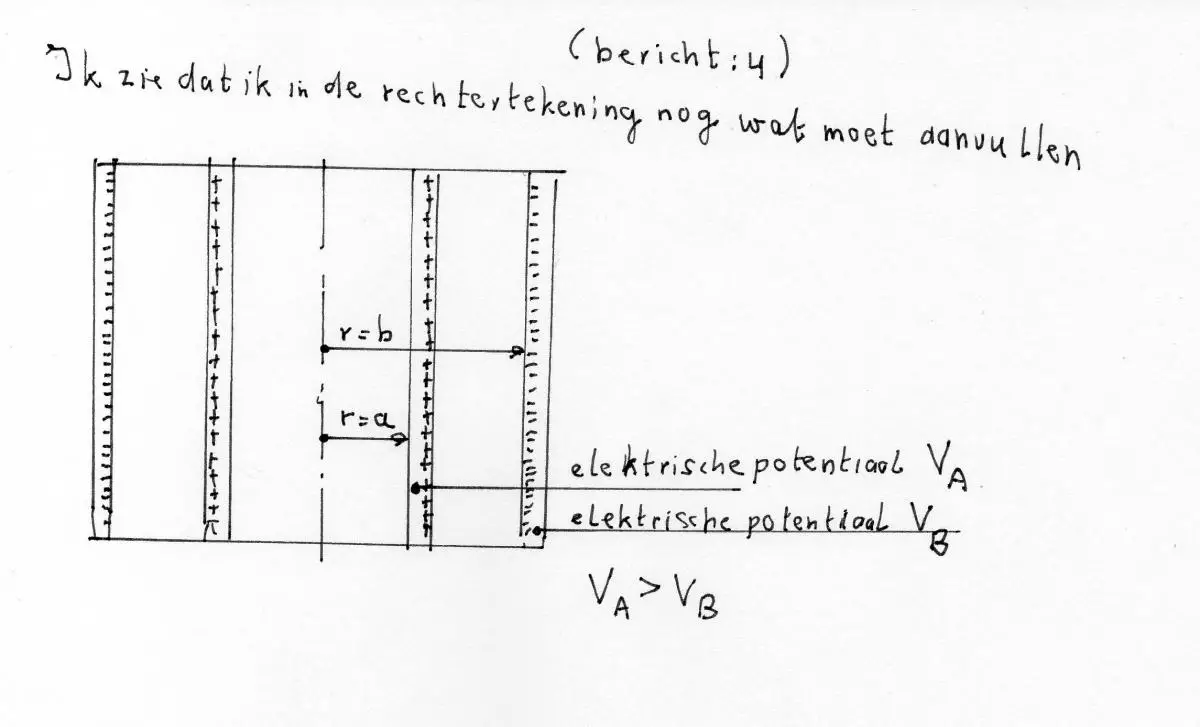 (bericht: 4)
Ik zie dat ik in de rechtertekening nog wat moet aanvullen
r = b
r = a
elektrische potentiaal V_A
elektrische potentiaal V_B
V_A > V_B